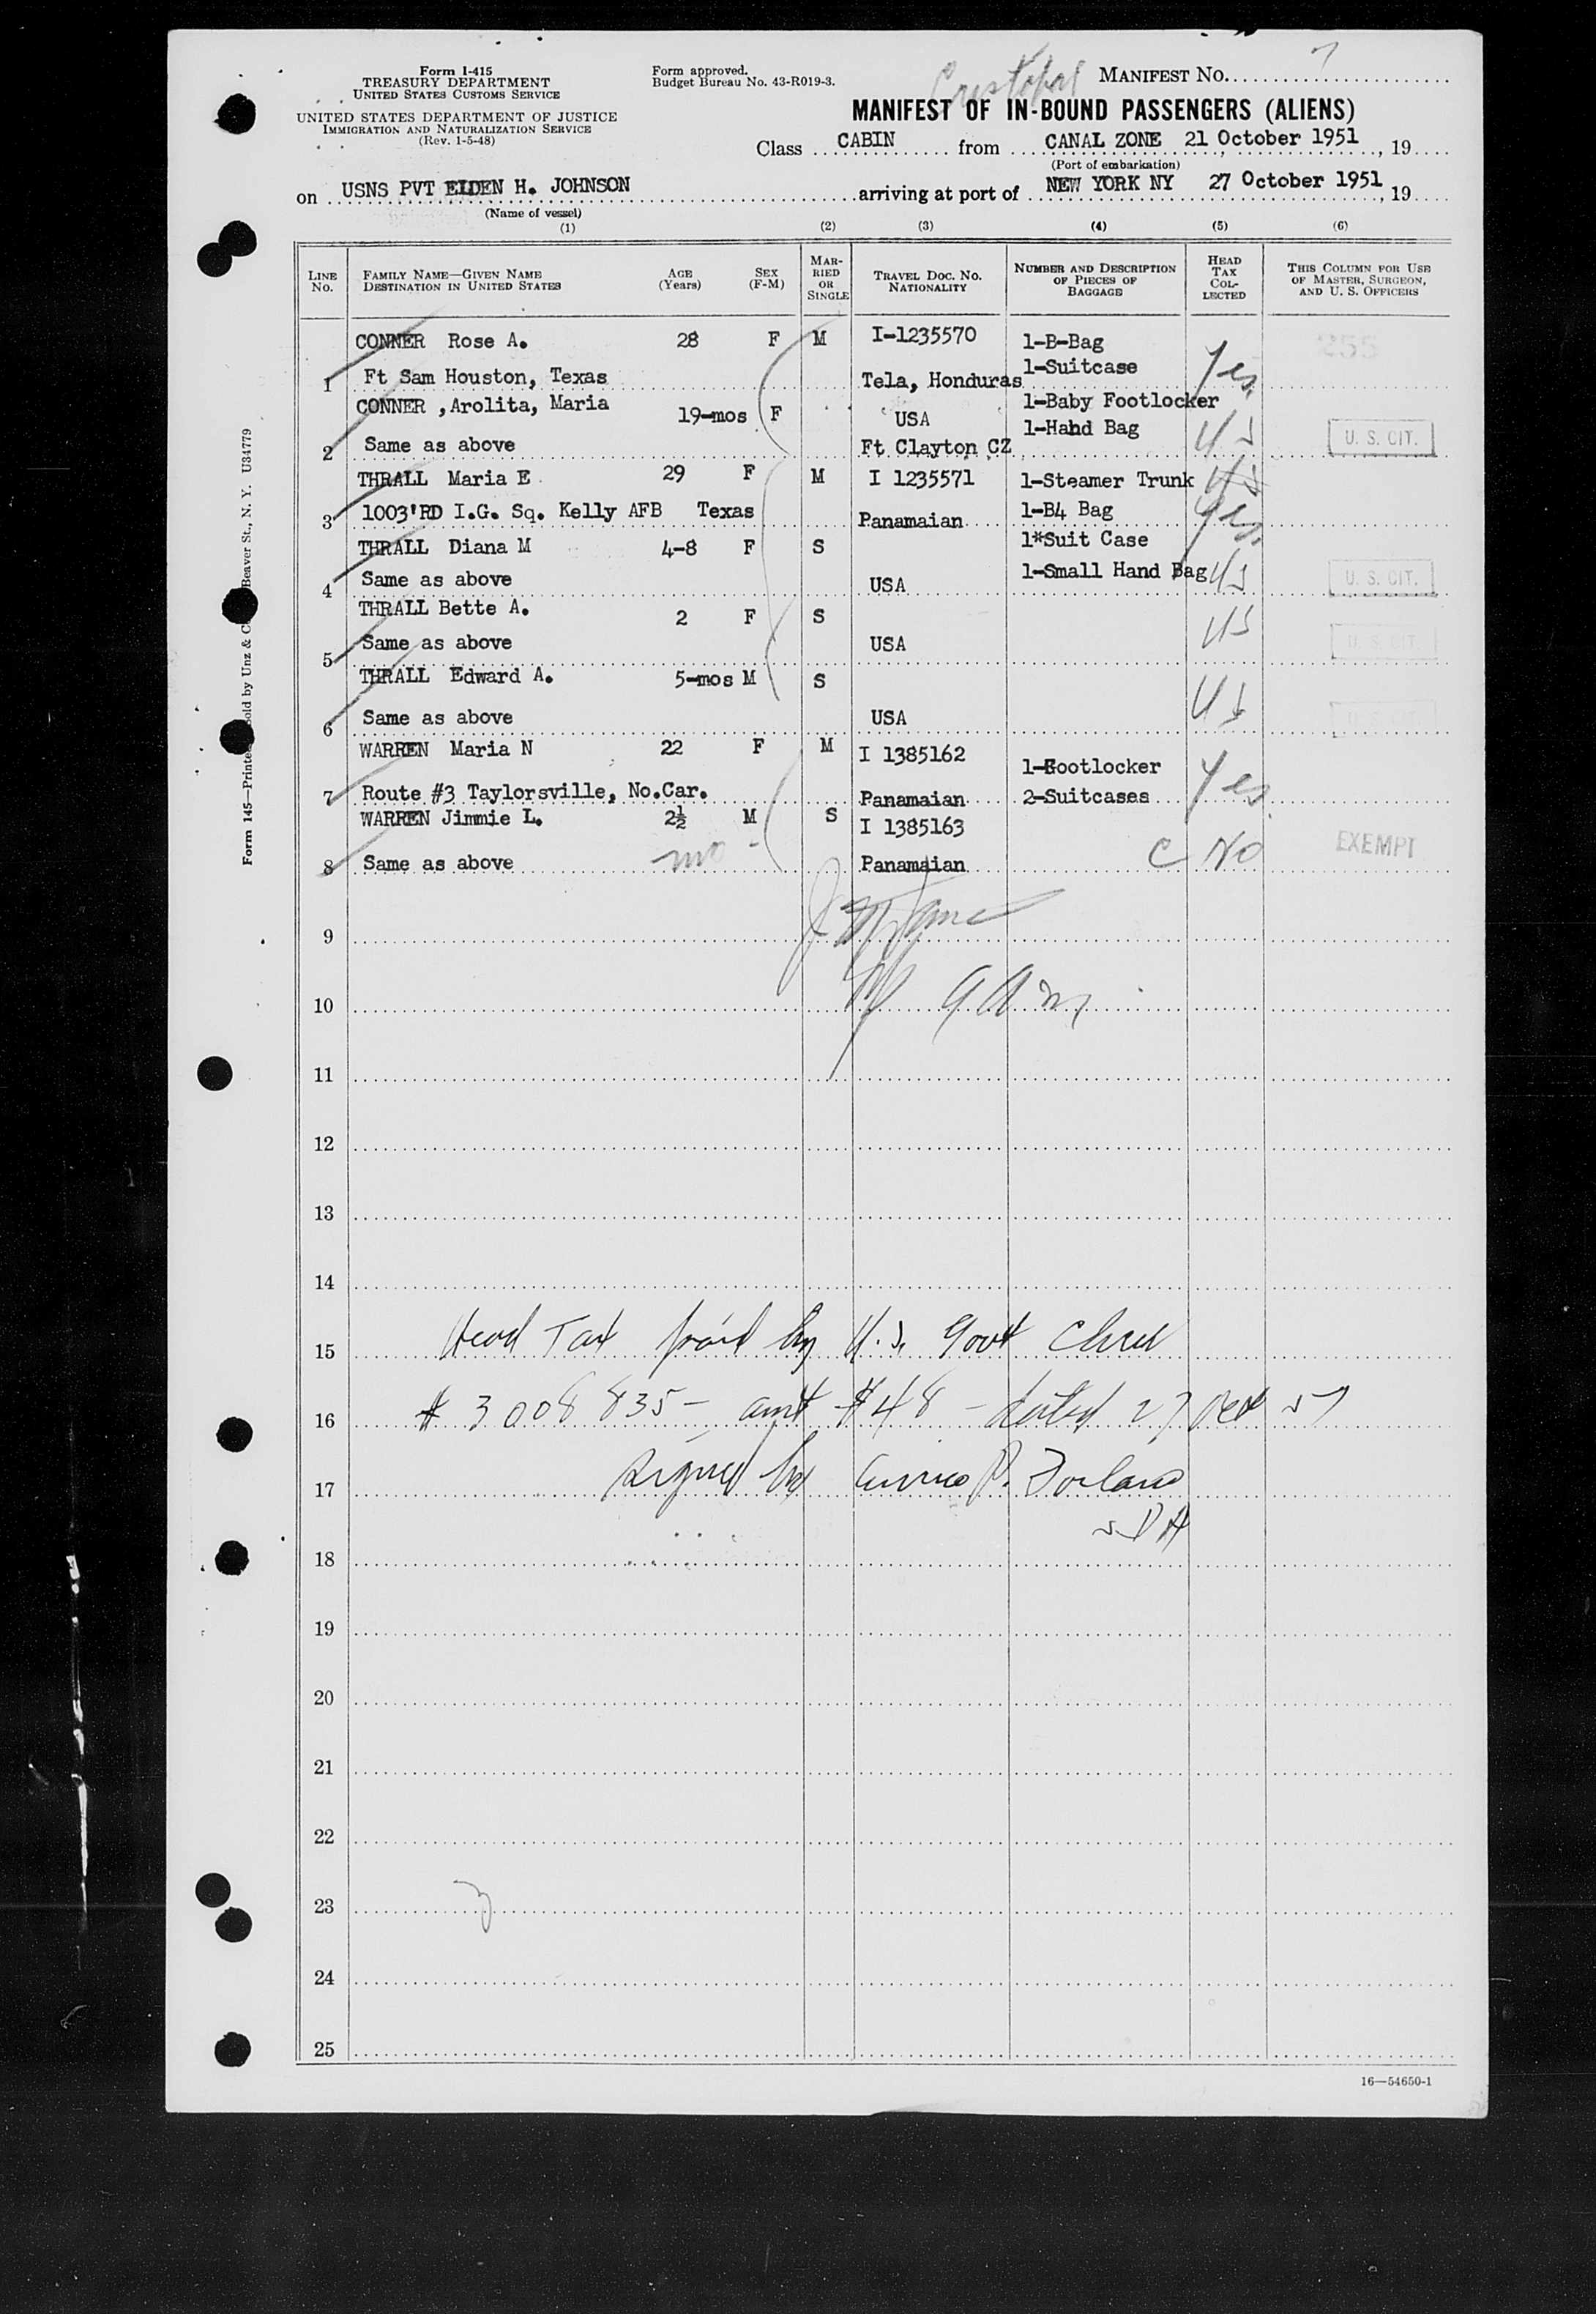 Form I-415
TREASURY DEPARTMENT
UNITED STATES CUSTOMS SERVICE
UNITED STATES DEPARTMENT OF JUSTICE
IMMIGRATION AND NATURALIZATION SERVICE
(Rev. 1-5-48)
Form approved.
Budget Bureau No. 43-R019-3.
Cristobal
MANIFEST No. 7
MANIFEST OF IN-BOUND PASSENGERS (ALIENS)
Class CABIN from CANAL ZONE 21 October 1951, 19
(Port of embarkation)
on USNS PVT ELDEN H. JOHNSON arriving at port of NEW YORK NY 27 October 1951, 19
(Name of vessel)
(1) (2) (3) (4) (5) (6)
LINE No. FAMILY NAME—GIVEN NAME DESTINATION IN UNITED STATES AGE (Years) SEX (F-M) MARRIED OR SINGLE TRAVEL DOC. NO. NATIONALITY NUMBER AND DESCRIPTION OF PIECES OF BAGGAGE HEAD TAX COLLECTED THIS COLUMN FOR USE OF MASTER, SURGEON, AND U. S. OFFICERS
CONNER Rose A. 28 F M I-1235570 1-B-Bag 255
1 Ft Sam Houston, Texas Tela, Honduras 1-Suitcase Yes
CONNER ,Arolita, Maria 19-mos F USA 1-Baby Footlocker
2 Same as above Ft Clayton CZ 1-Hand Bag US U. S. CIT.
THRALL Maria E 29 F M I 1235571 1-Steamer Trunk US
3 1003'RD I.G. Sq. Kelly AFB Texas Panamaian 1-B4 Bag Yes
THRALL Diana M 4-8 F S 1*Suit Case
4 Same as above USA 1-Small Hand Bag US U. S. CIT.
THRALL Bette A. 2 F S US
5 Same as above USA U. S. CIT.
THRALL Edward A. 5-mos M S
6 Same as above USA US U. S. CIT.
WARREN Maria N 22 F M I 1385162 1-Footlocker
7 Route #3 Taylorsville, No.Car. Panamaian 2-Suitcases Yes
WARREN Jimmie L. 2½ M S I 1385163
8 Same as above mo Panamaian C NO EXEMPT
9
10
11
12
13
14
15 Head Tax paid by U.S. Govt
16 # 3008835- amt $48 - dated 27 Oct 51
17 Signed by
18
19
20
21
22
23
24
25
16—54650-1
Form 145—Printed
Sold by Unz &
Beaver St., N. Y. U34779